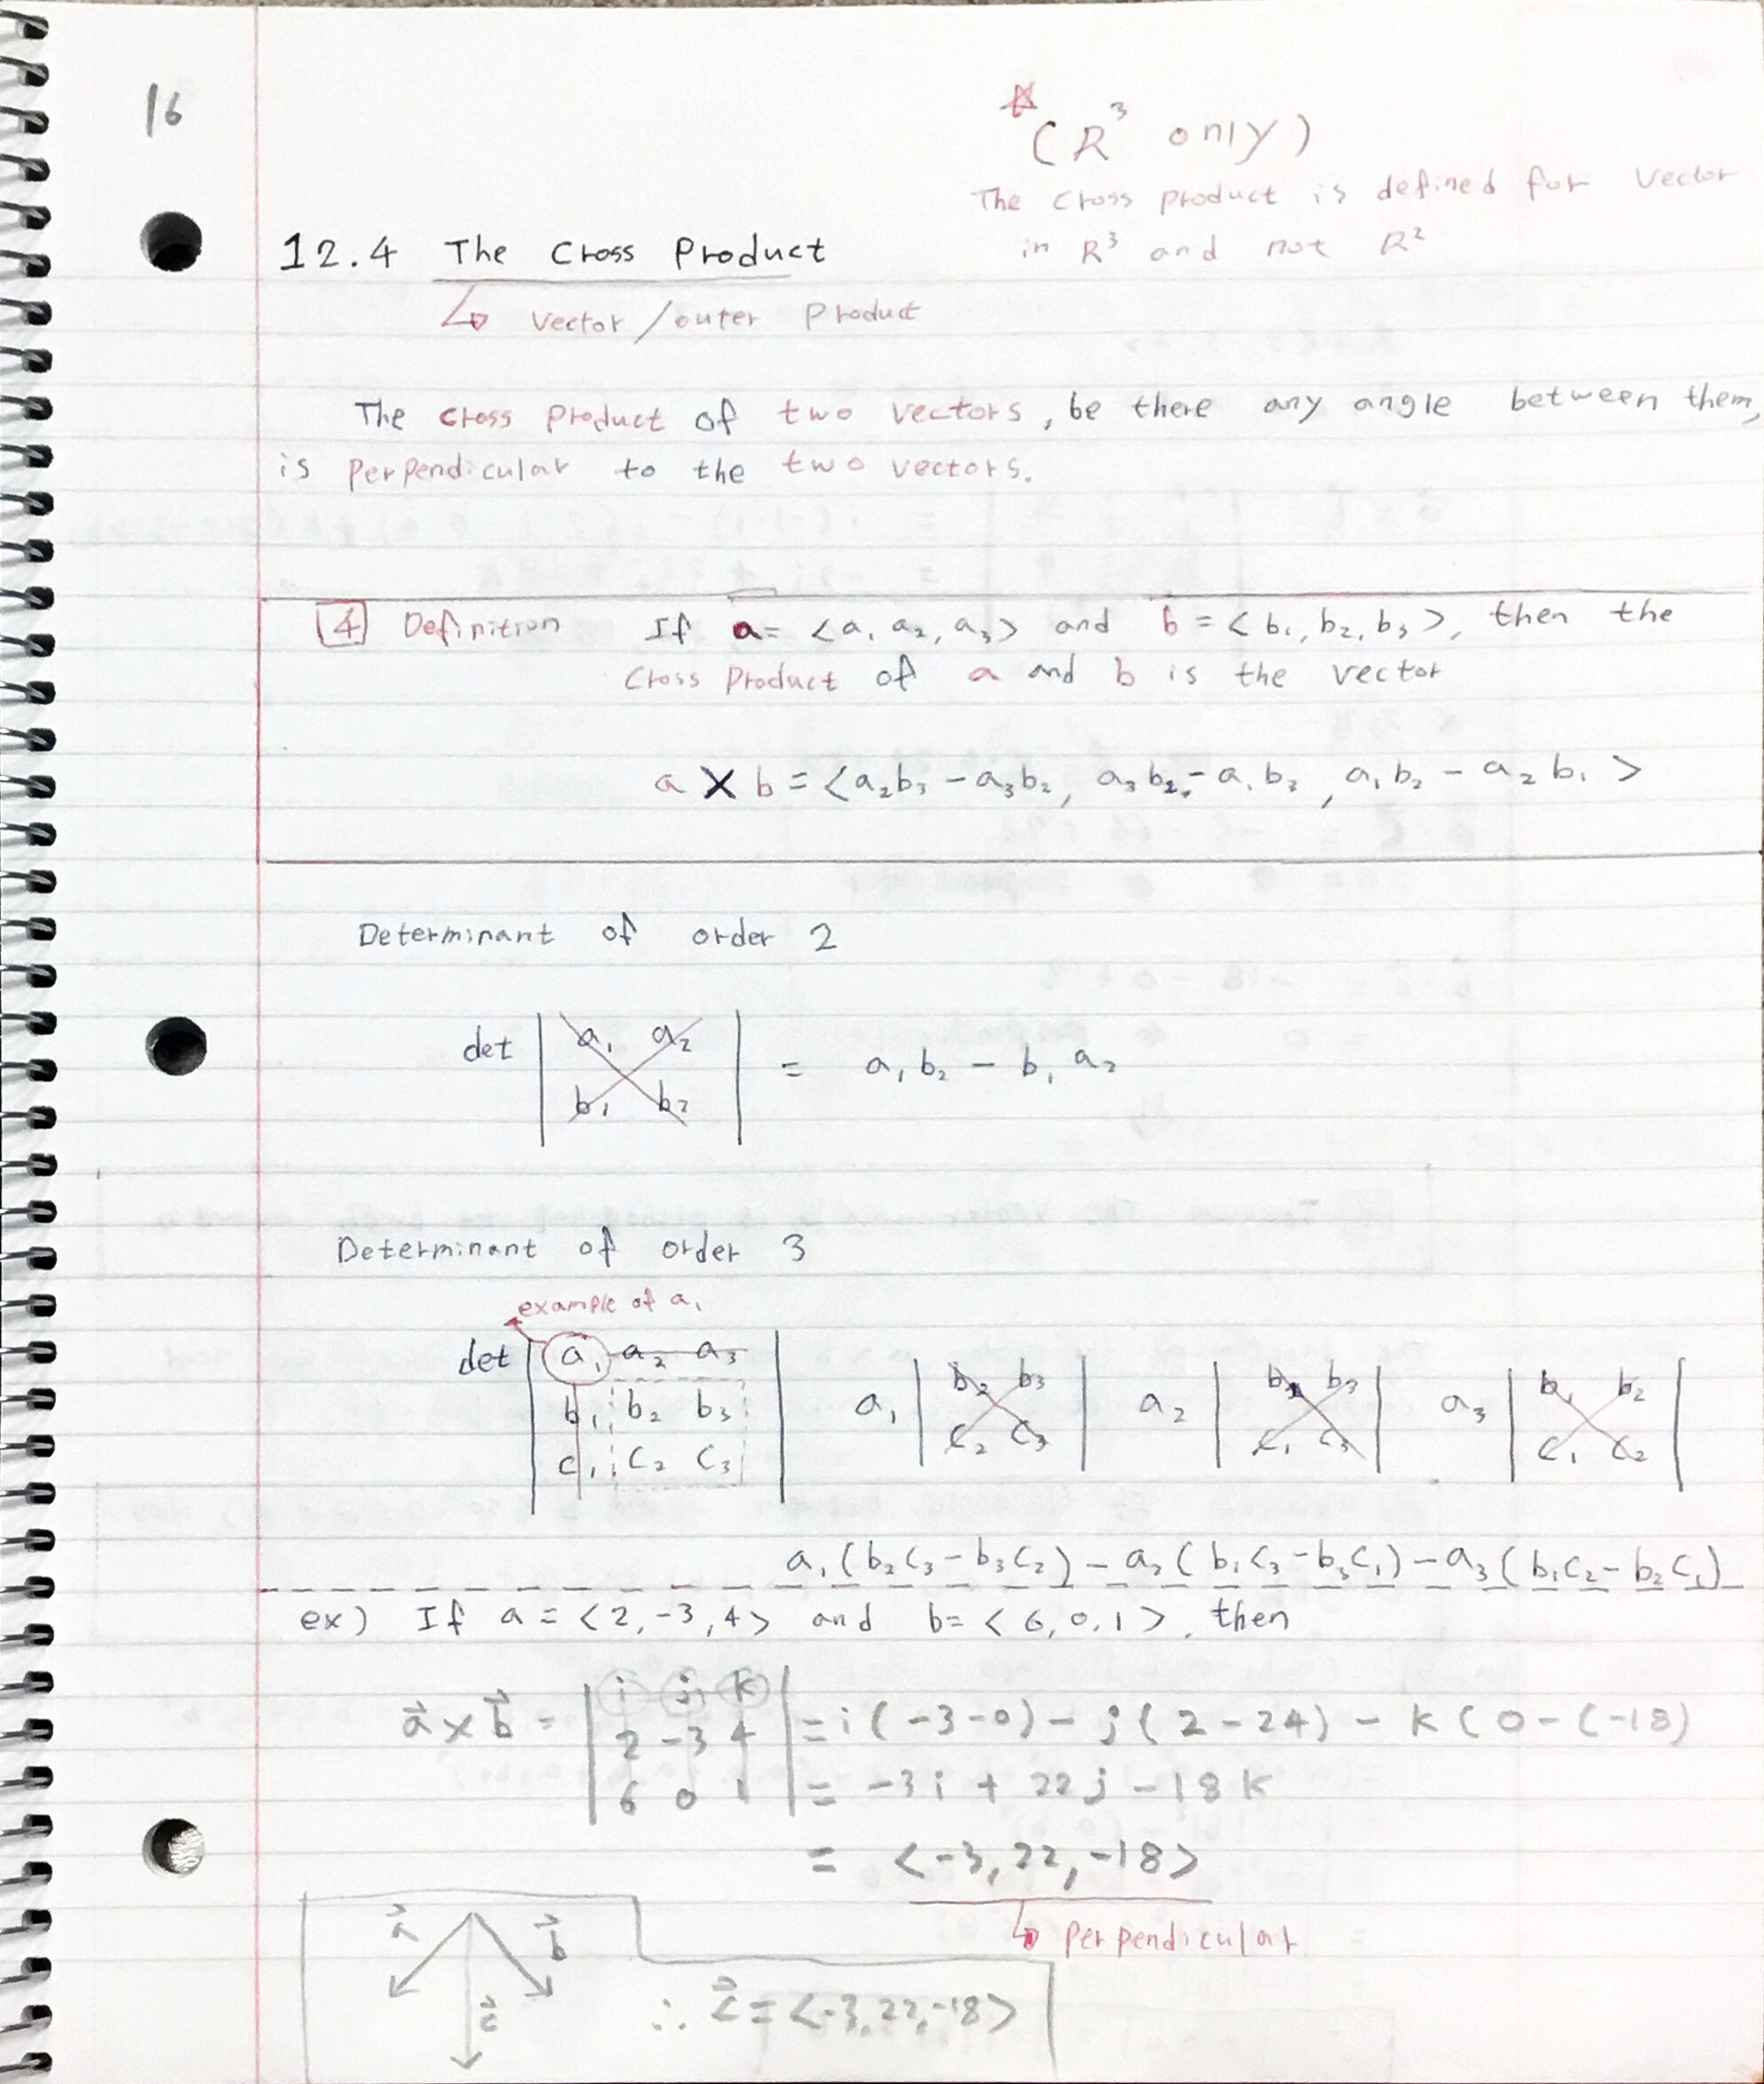 16
(R³ only)
The cross product is defined for vector
in R³ and not R²
12.4 The Cross Product
vector/outer product
The cross product of two vectors, be there any angle between them,
is perpendicular to the two vectors.
4 Definition If a = <a₁ a₂, a₃> and b = <b₁, b₂, b₃>, then the
cross product of a and b is the vector
a × b = <a₂b₃ - a₃b₂, a₃b₁ - a₁b₃, a₁b₂ - a₂b₁>
Determinant of order 2
det | a₁ a₂ | = a₁b₂ - b₁a₂
b₁ b₂
Determinant of order 3
example of a₁
det | a₁ a₂ a₃ | a₁ | b₂ b₃ | a₂ | b₁ b₃ | a₃ | b₁ b₂ |
b₁ b₂ b₃ c₂ c₃ c₁ c₃ c₁ c₂
c₁ c₂ c₃
a₁(b₂c₃ - b₃c₂) - a₂(b₁c₃ - b₃c₁) - a₃(b₁c₂ - b₂c₁)
ex) If a = <2, -3, 4> and b = <6, 0, 1>, then
a⃗ × b⃗ = | i j k | = i(-3-0) - j(2-24) - k(0-(-18)
2 -3 4
6 0 1 = -3i + 22j - 18k
= <-3, 22, -18>
perpendicular
a⃗ b⃗
c⃗
∴ c⃗ = <-3, 22, -18>